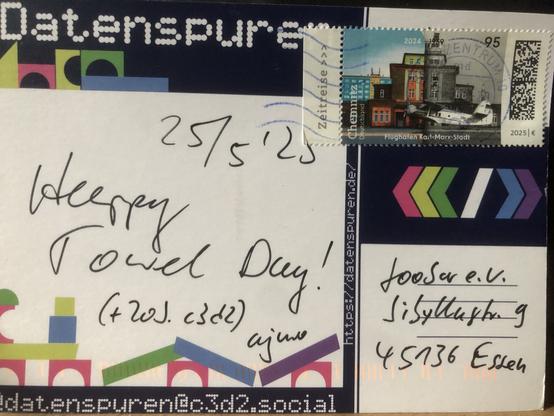 Datenspure
2024
1989
95
Zeitreise >>>
Chemnitz
Flughafen Karl-Marx-Stadt
2025 | €
25/5'25
Happy
Towel Day!
(+20J. c3d2)
https://datenspuren.de/
</>
foobar e.V.
Sibyllastr. 9
45136 Essen
@datenspuren@c3d2.social